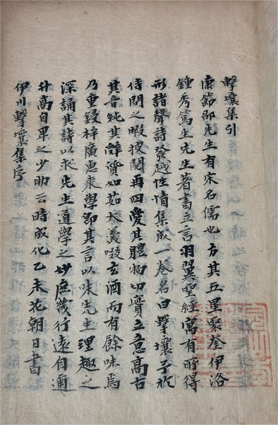 擊壤集引
康節邵先生有宋名儒也方其五星聚奎伊洛
鍾秀篤生先生著書立言羽翼聖經萬有所得
形諸聲詩發越性情集成一卷名曰擊壤予於
侍閒之暇披閱再四愛其體物切實立意高古
其音純其辭質如茹大羹啜玄酒而有餘味焉
乃重鋟梓廣惠来學即其言以求先生理趣之
深誦其詩以求先生道學之妙庶幾行遠自邇
升高自卑之少助云時成化乙未花朝日書
伊川擊壤集序